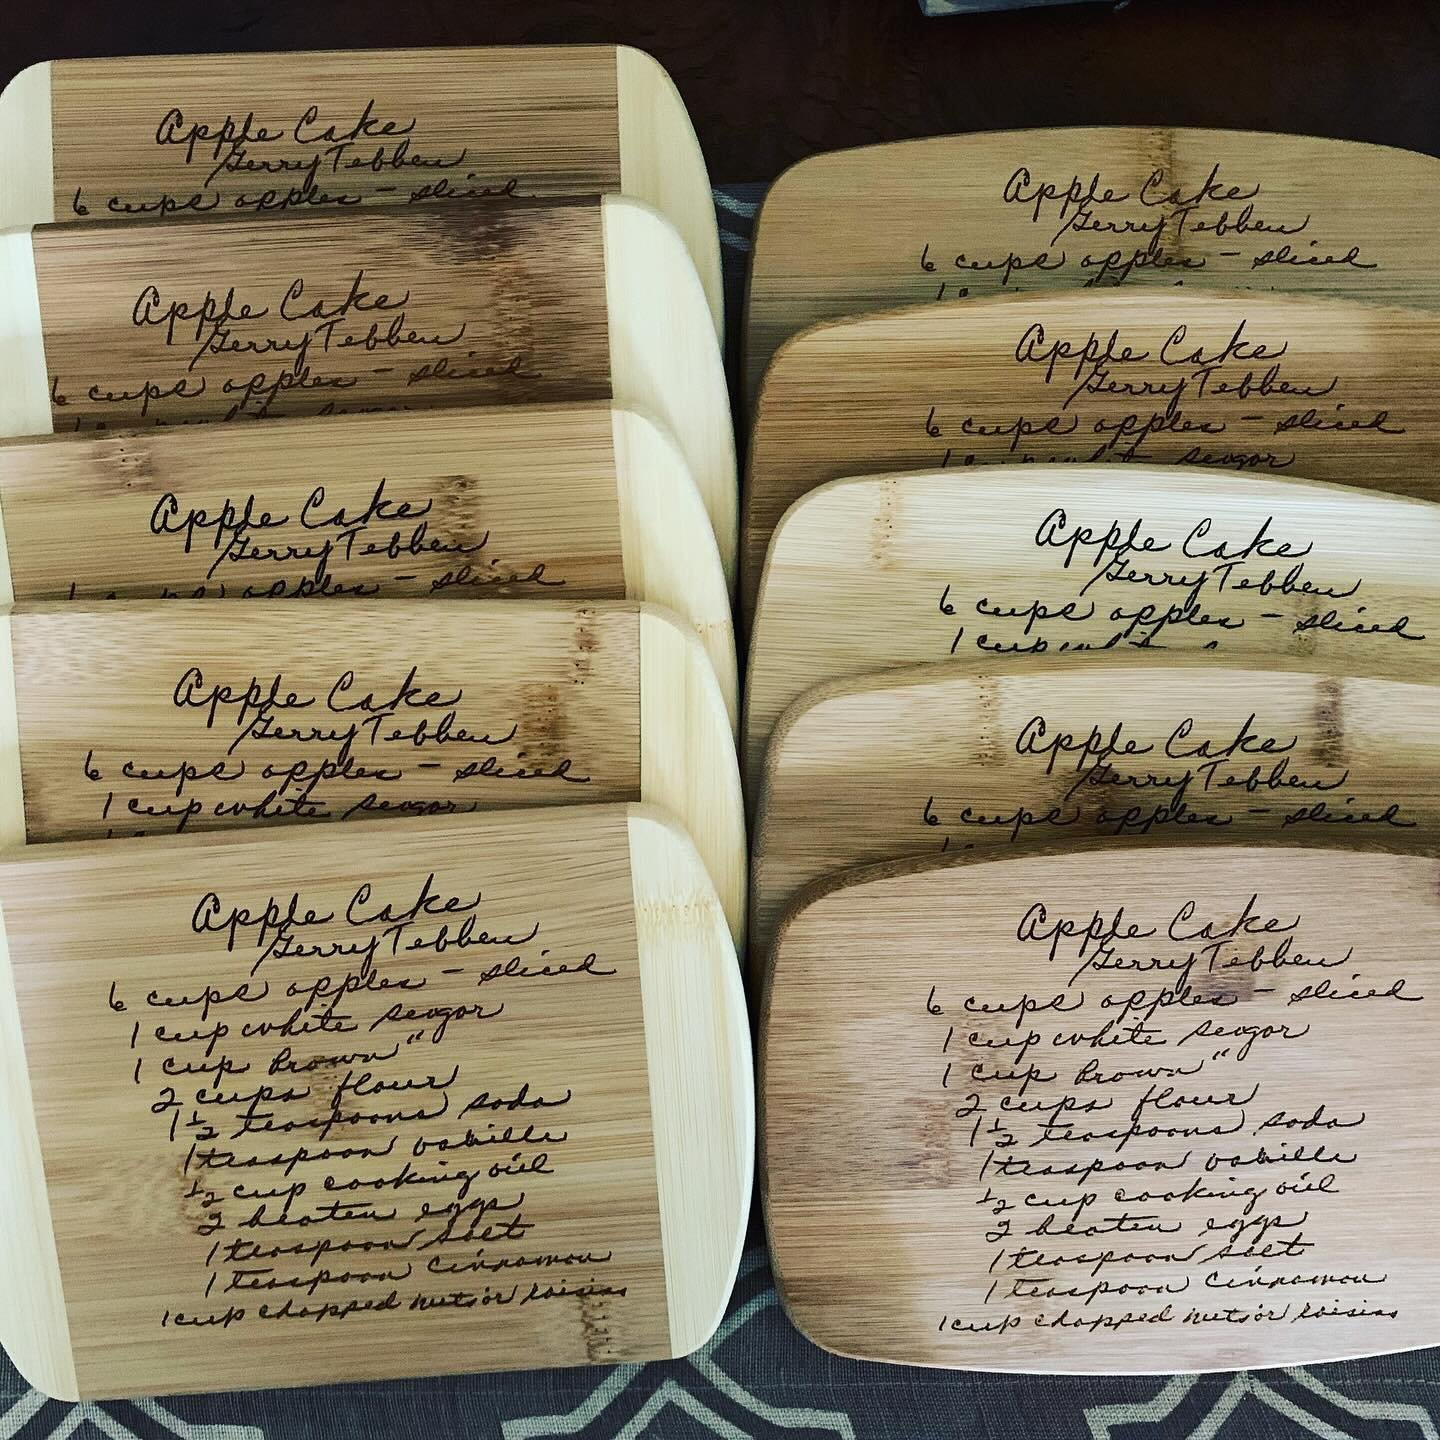 Apple Cake
Gerry Tebben
6 cups apples - sliced
Apple Cake
Gerry Tebben
6 cups apples - sliced
1 cup white sugar
Apple Cake
Gerry Tebben
6 cups apples - sliced
Apple Cake
Gerry Tebben
6 cups apples - sliced
1 cup white sugar
Apple Cake
Gerry Tebben
6 cups apples - sliced
1 cup white sugar
1 cup brown "
2 cups flour
1 1/2 teaspoons soda
1 teaspoon vanilla
1/2 cup cooking oil
2 beaten eggs
1 teaspoon salt
1 teaspoon cinnamon
1 cup chopped nuts or raisins
Apple Cake
Gerry Tebben
6 cups apples - sliced
Apple Cake
Gerry Tebben
6 cups apples - sliced
1 cup white sugar
Apple Cake
Gerry Tebben
6 cups apples - sliced
1 cup
Apple Cake
Gerry Tebben
6 cups apples - sliced
Apple Cake
Gerry Tebben
6 cups apples - sliced
1 cup white sugar
1 cup brown "
2 cups flour
1 1/2 teaspoons soda
1 teaspoon vanilla
1/2 cup cooking oil
2 beaten eggs
1 teaspoon salt
1 teaspoon cinnamon
1 cup chopped nuts or raisins